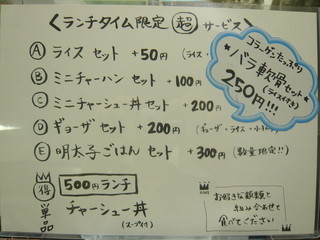 <ランチタイム限定 超 サービス>
A ライス セット +50円 (ライス・
B ミニチャーハン セット +100円
C ミニチャーシュー丼セット +200円
D ギョーザ セット +200円 (ギョーザ・ライス・
E 明太子ごはん セット +300円 (数量限定!!)
コラーゲンたっぷり
バラ軟骨セット
(ライス付き)
250円!!!
得 500円ランチ
単品 チャーシュー丼
(スープ付)
お好きな麺類と
組み合わせて
食べてください